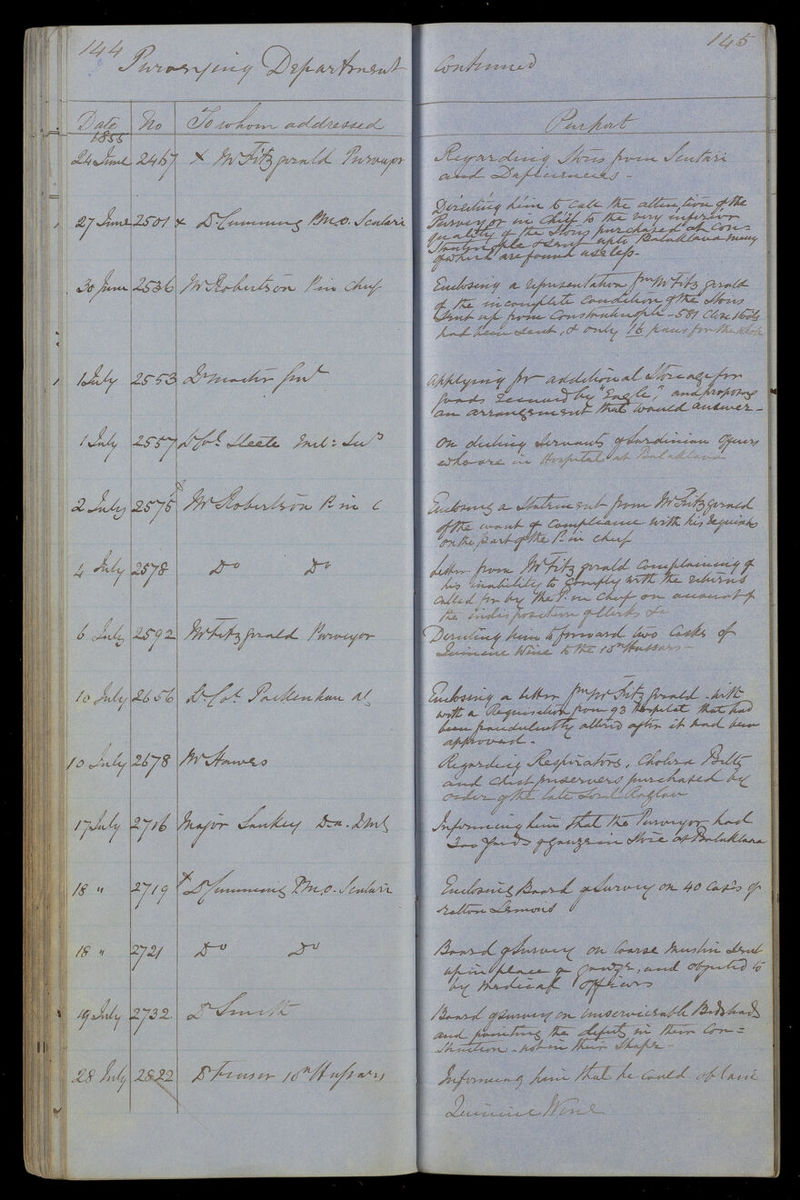 144
145
Purveying Department continued
Date No To whom addressed Purport
1855
24 June 2467 x Mr Fitzgerald Purveyor Regarding Stores from Scutari
and Deficiencies -
27 June 2501 x Dr Cumming P.M.O. Scutari Directing him to call the attention of the
Purveyor in Chief to the very inferior
quality of the Stores purchased at Con=
stantinople & sent up to Balaklava many
of which are found useless -
30 June 2536 Mr Robertson P. in Chief Enclosing a representation fm Mr Fitzgerald
of the incomplete condition of the Stores
sent up from Constantinople - 581 close stools
had been sent, & only 16 pans for the whole
1 July 2553 Qr Master Genl Applying for additional Storeage for
goods received by "Eagle", and proposing
an arrangement that would answer -
1 July 2557 Lt Col. Steele Mil: Secy On dieting Servants of Sardinian Officers
who are in Hospital at Balaklava
2 July 2575 Mr Robertson P. in C Enclosing a Statement from Mr Fitzgerald
of the want of compliance with his requisns
on the part of the P. in Chief
4 July 2578 Do Do Letter from Mr Fitzgerald complaining of
his inability to comply with the returns
called for by the P. in Chief on account of
the indisposition of Clerks &c
6 July 2592 Mr Fitzgerald Purveyor Directing him to forward two Casks of
Quinine Wine to the 10th Hussars -
10 July 2656 Lt. Col. Pakenham AG Enclosing a letter fm Mr Fitzgerald - with
with a Requisition from 93 Hospital that had
been fraudulently altered after it had been
approved -
10 July 2678 Mr Hawes Regarding Respirators, Cholera Belts
and chest preservers purchased by
order of the late Lord Raglan
17 July 2716 Major Sankey Informing him that the Purveyor had
300 yards of gauze in Store at Balaklava
18 " 2719 x Dr Cumming P.M.O. Scutari Enclosing Board of Survey on 40 cases of
rotten Lemons
18 " 2721 Do Do Board of Survey on Coarse Muslin sent
up in place of gauze, and objected to
by Medical Officers
19 July 2732 Dr Smith Board of Survey on unserviceable Bedsteads
and pointing the defects in their Con=
struction - not in their Shape -
28 July 2822 Dr Fraser 10th Hussars Informing him that he could obtain
Quinine Wine